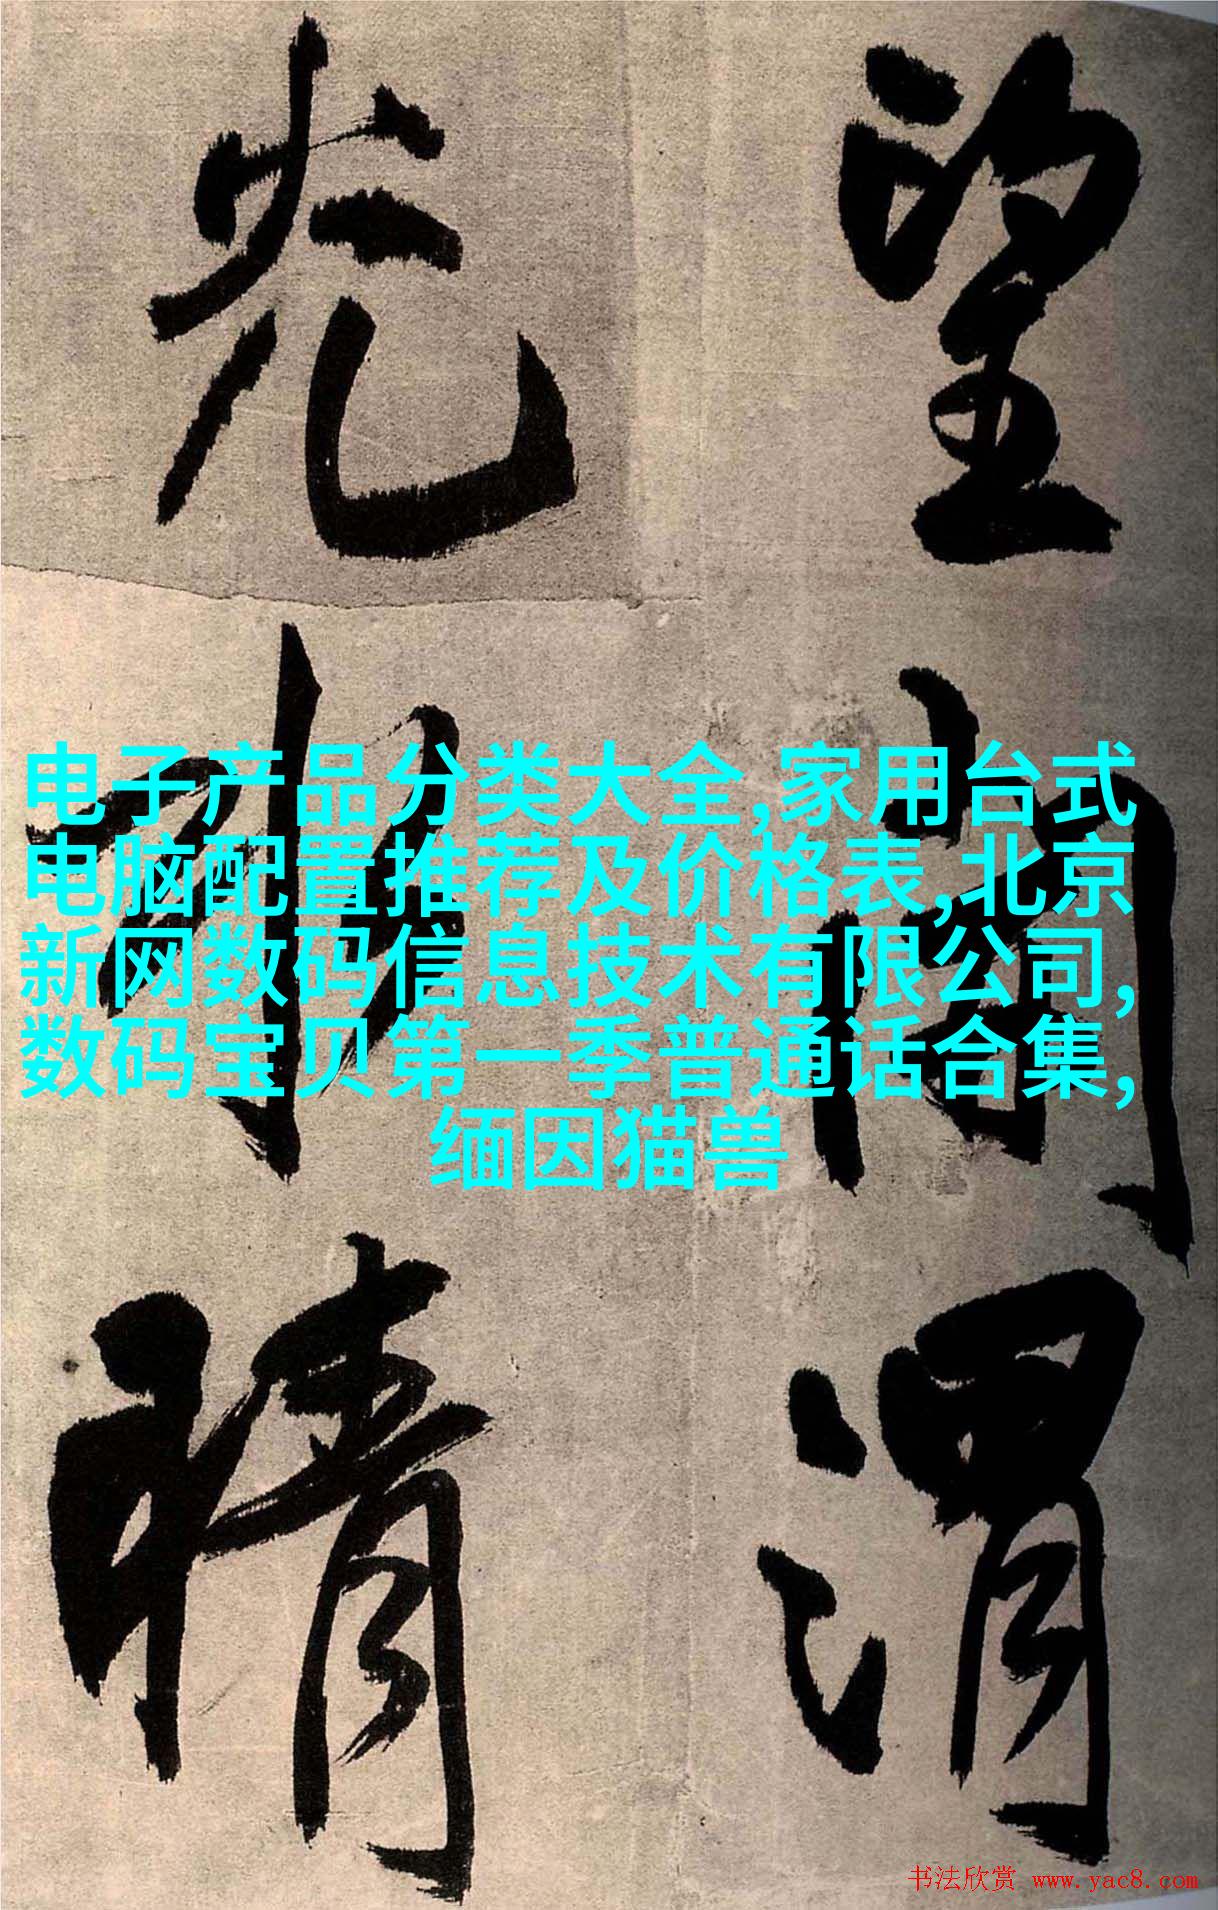 电子产品分类大全,家用台式
电脑配置推荐及价格表,北京
新网数码信息技术有限公司,
数码宝贝第一季普通话合集,
缅因猫兽
望 渭
光 晴
书法欣赏 www.yac8.com